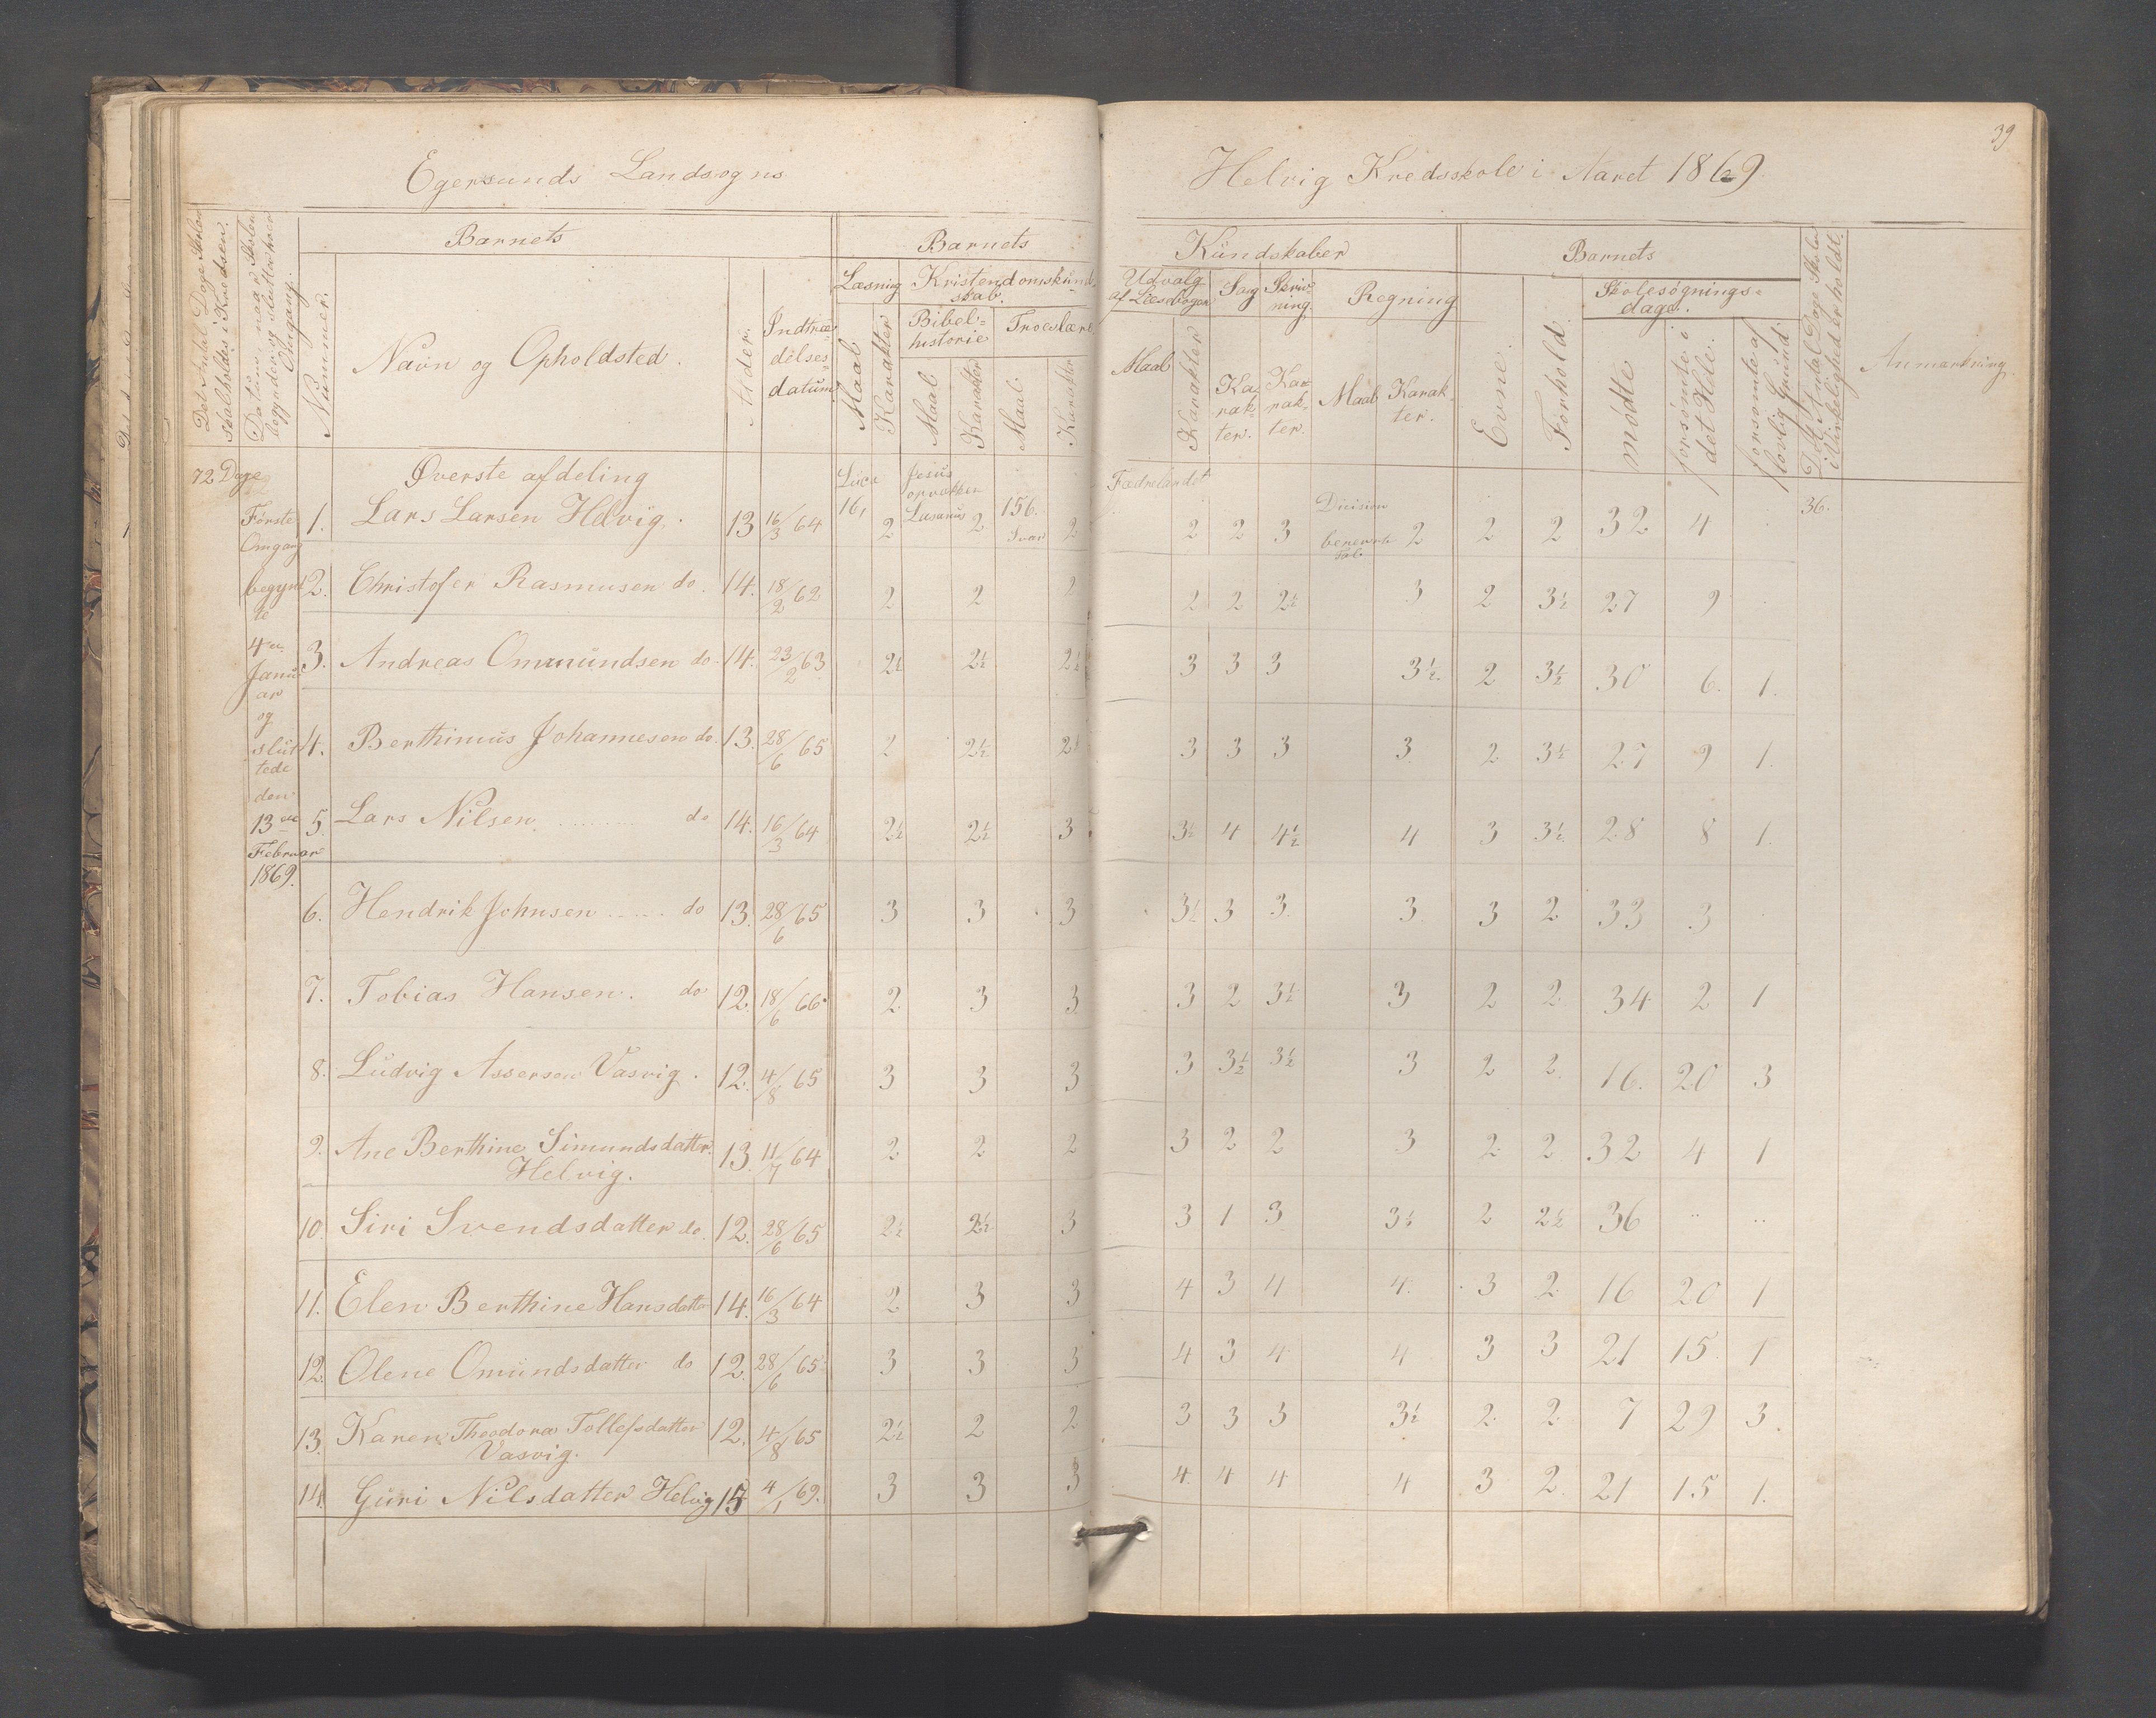 39
Egersunds Landsogns
Helvig Kredsskole i Aaret 1869
Det Antal Dage Skolen skal holdes i Kredsen.
Datum, naar Skolen begynder og slutter hver Omgang.
Barnets
Nummer.
Navn og Opholdsted.
Alder.
Indtræ-
delses-
datum.
Barnets
Læsning
Kristendomskund-
skab.
Maal
Karakter
Bibel-
historie
Troeslære
Maal.
Karakter
Maal.
Karakter
Kundskaber
Udvalg
af Læsebogen
Sang
Skriv-
ning.
Regning
Maal
Karakter
Ka-
rak-
ter.
Kar-
rak-
ter.
Maal
Karak-
ter.
Barnets
Evne.
Forhold.
Skolesøgnings-
dage.
mødte
forsømte i det Hele.
forsømte af lovlig Grund.
Det Antal Dage Skolen i Virkelighed er holdt.
Anmærkning.
72 Dage
Første
Omgang
begynd
te
4de
Janu
ar
og
slut
tede
den
13de
Februar
1869.
Øverste afdeling
Luca 16,
Jesus
opvækker
Lasarus
156. Svar
Fædrelandet
Division
benevnte
Tal.
36.
1. Lars Larsen Helvig. 13 16/3 64 2 2 2 2 2 3 2 2 2 32 4
2. Christofer Rasmusen do. 14. 18/2 62 2 2 2 2 2 2½ 3 2 3½ 27 9
3. Andreas Ommundsen do. 14. 23/2 63 2½ 2½ 2½ 3 3 3 3½ 2 3½ 30 6. 1.
4. Berthinius Johannesen do. 13. 28/6 65 2 2½ 2½ 3 3 3 3 2 3½ 27 9 1.
5. Lars Nilsen do 14. 16/3 64 2½ 2½ 3 3½ 4 4½ 4 3 3½ 28 8 1.
6. Hendrik Johnsen do 13. 28/6 65 3 3 3 3½ 3 3 3 3 2 33 3
7. Tobias Hansen. do 12. 18/6 66 2 3 3 3 2 3½ 3 2 2 34 2 1
8. Ludvig Assersen Vasvig. 12. 4/8 65 3 3 3 3 3½ 3½ 3 2 2 16. 20 3
9. Ane Berthine Simundsdatter
Helvig. 13. 11/7 64 2 2 2 3 2 2 3 2 2 32 4 1
10. Siri Svendsdatter do. 12. 28/6 65 2½ 2½ 3 3 1 3 3½ 2 2½ 36 .. ..
11. Elen Berthine Hansdatter 14. 16/3 64 2 3 3 4 3 4 4. 3 2 16 20 1
12. Olene Omundsdatter do 12. 28/6 65 3 3 3 4 3 4 4 3 3 21 15 1
13. Karen Theodora Tollefsdatter
Vasvig. 12. 4/8 65 2½ 2 2 3 3 3 3½ 2 2 7 29 3.
14. Guri Nilsdatter Helvig 15 4/1 69. 3 3 3 4 4 4 4 3 2 21 15 1.